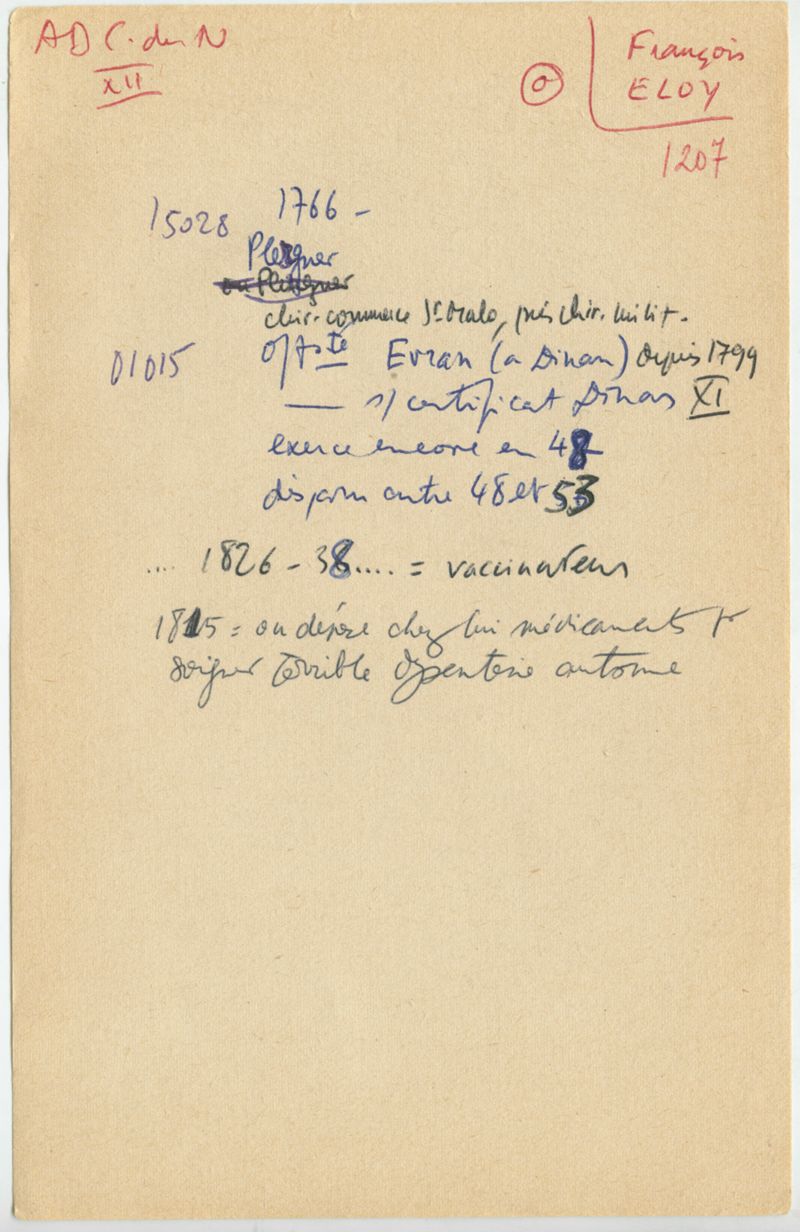 AD C. du N
XII
O
François
ELOY
1207
15028 1766 -
Plerguer
ou Plerguer
chir. commerce St Malo, puis chir. milit.
01015 off sté Evran (a Dinan) depuis 1799
— s/ certificat Dinan XI
exerce encore en 48
disparu entre 48 et 53
.... 1826 - 38.... = vaccinateur
1815 = on dépose chez lui médicaments pr
soigner terrible dysenterie automne